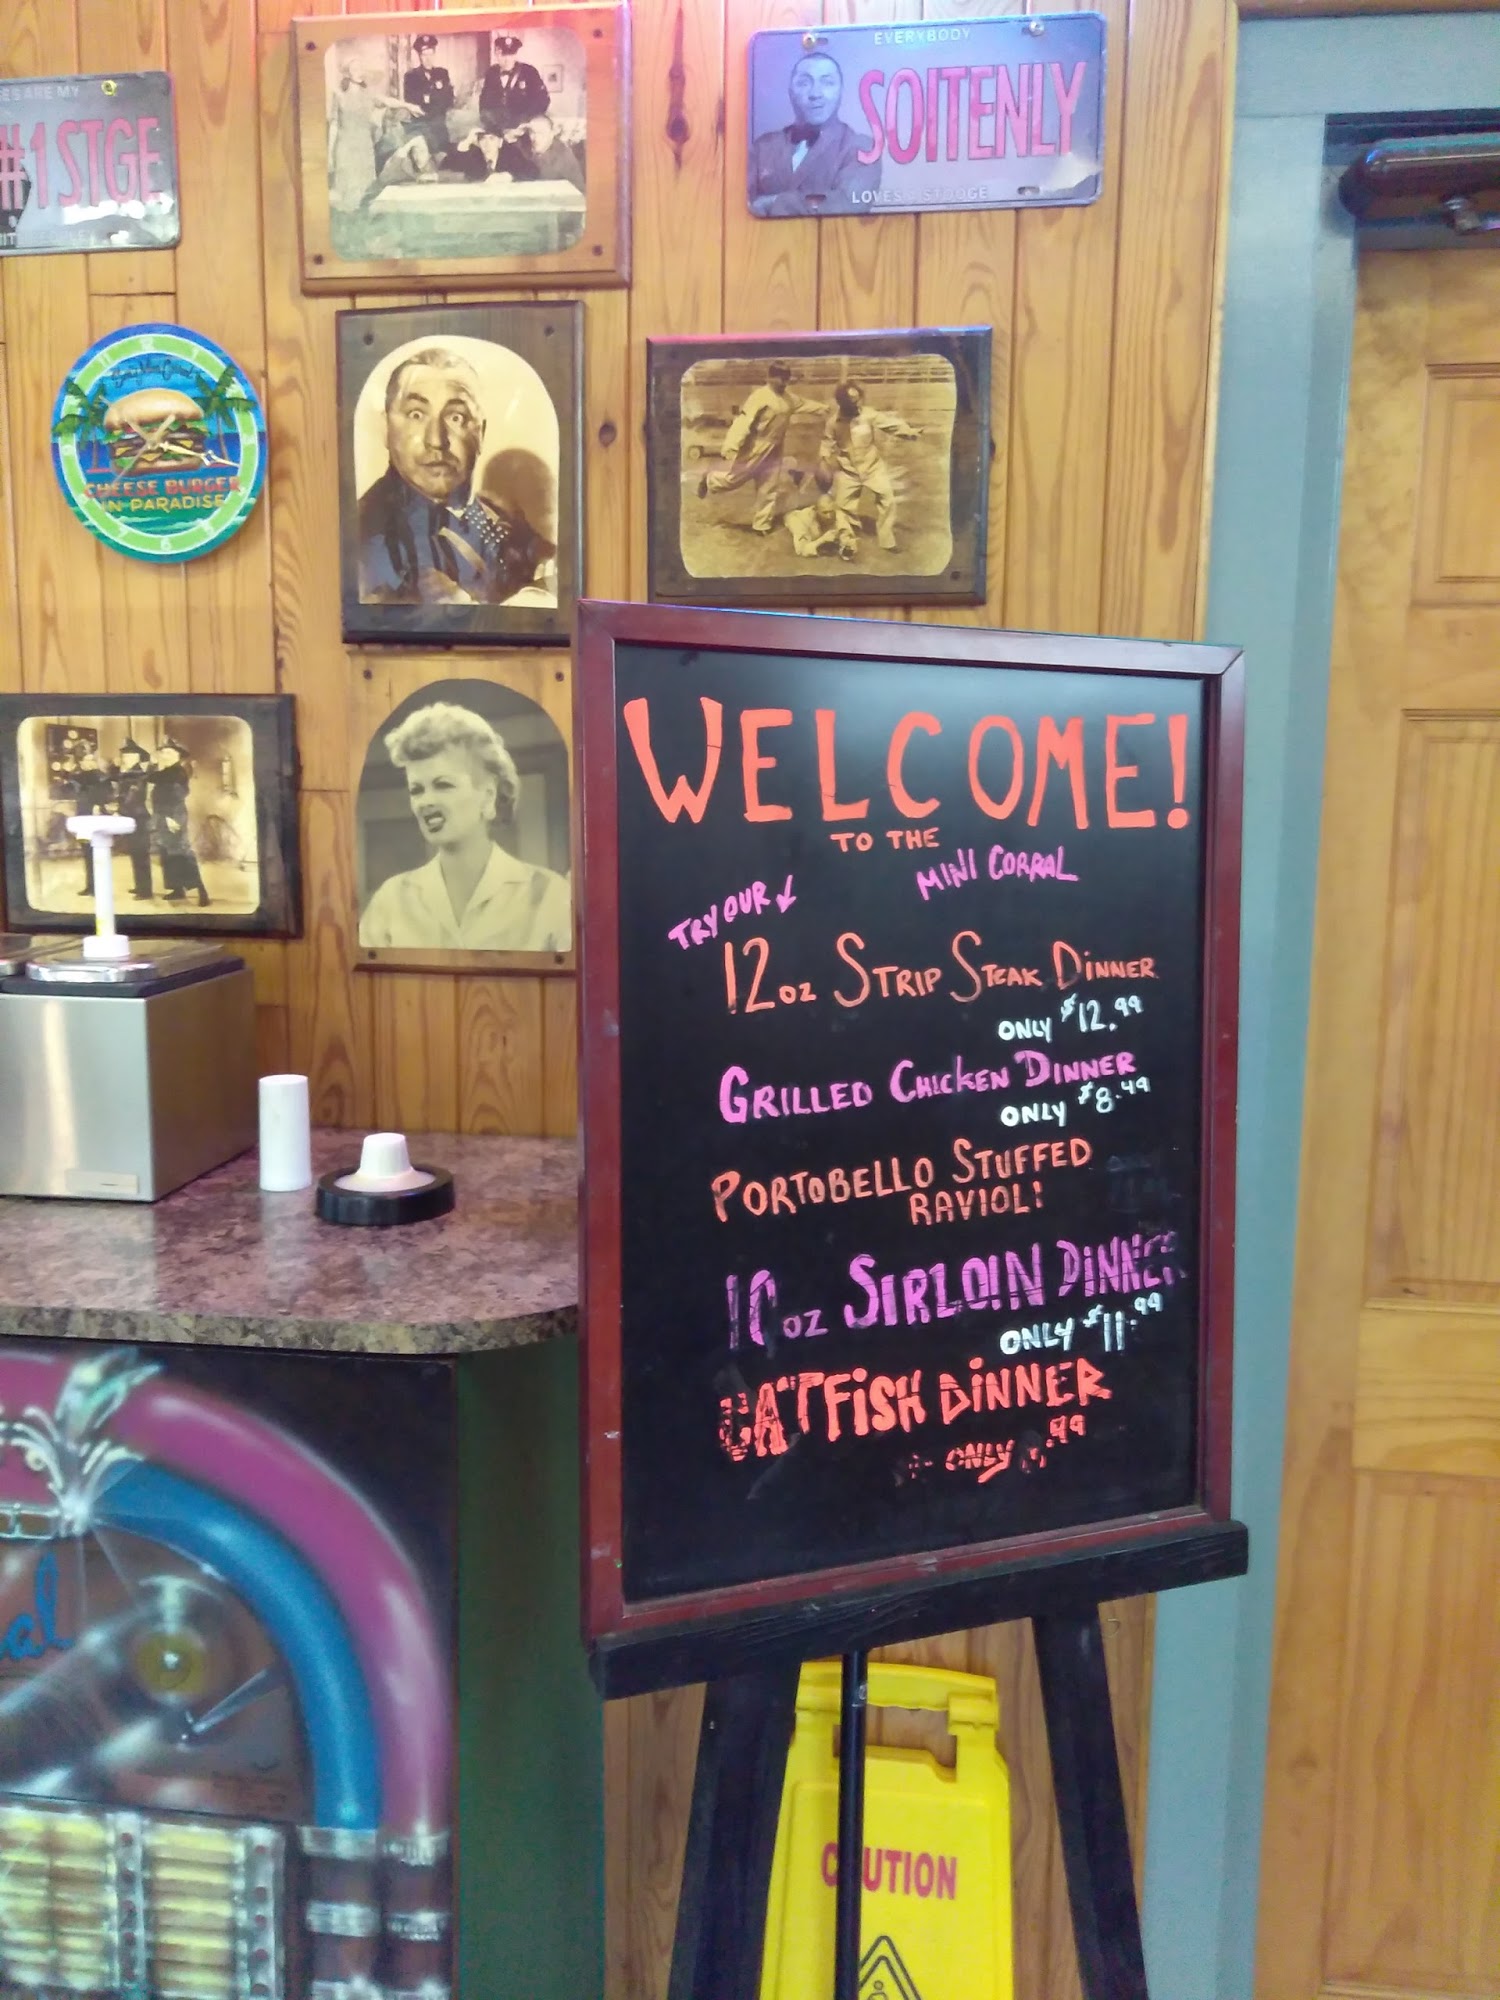 EVERYBODY
SOITENLY
LOVES A STOOGE
ES ARE MY
#1 STGE
CHEESE BURGER
IN PARADISE
WELCOME!
TO THE
MINI CORRAL
TRY OUR
12oz STRIP STEAK DINNER
ONLY $12.99
GRILLED CHICKEN DINNER
ONLY $8.49
PORTOBELLO STUFFED
RAVIOLI
10oz SIRLOIN DINNER
ONLY $11.99
CATFISH DINNER
ONLY .99
CAUTION